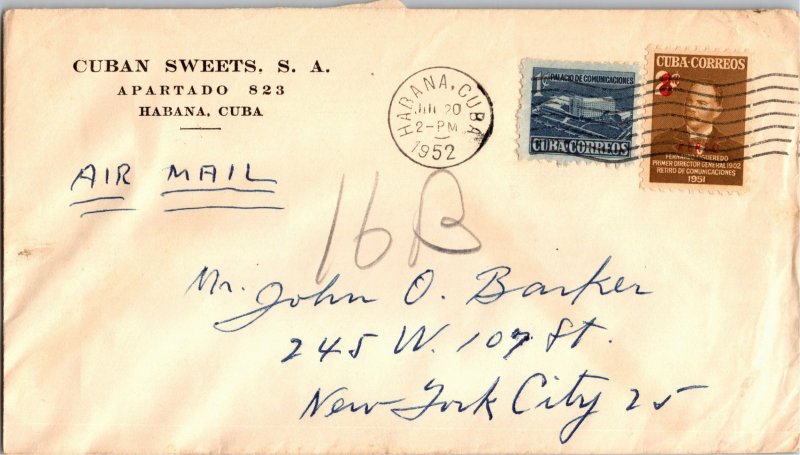 CUBAN SWEETS, S. A.
APARTADO 823
HABANA, CUBA
AIR MAIL
HABANA, CUBA
20
2-PM
1952
1c PALACIO DE COMUNICACIONES
CUBA-CORREOS
CUBA-CORREOS
FERNANDO FIGUEREDO
PRIMER DIRECTOR GENERAL 1902
RETIRO DE COMUNICACIONES
1951
16B
Mr. John O. Barker
245 W. 107 St.
New York City 25